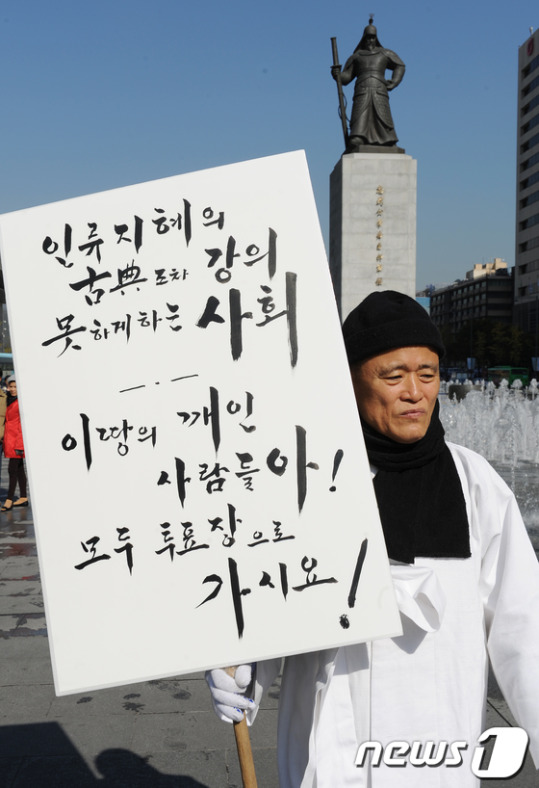 인류 지혜의
古典 조차 강의
못하게 하는 사회
이 땅의 깨인
사람들아!
모두 투표장으로
가시요!
news1